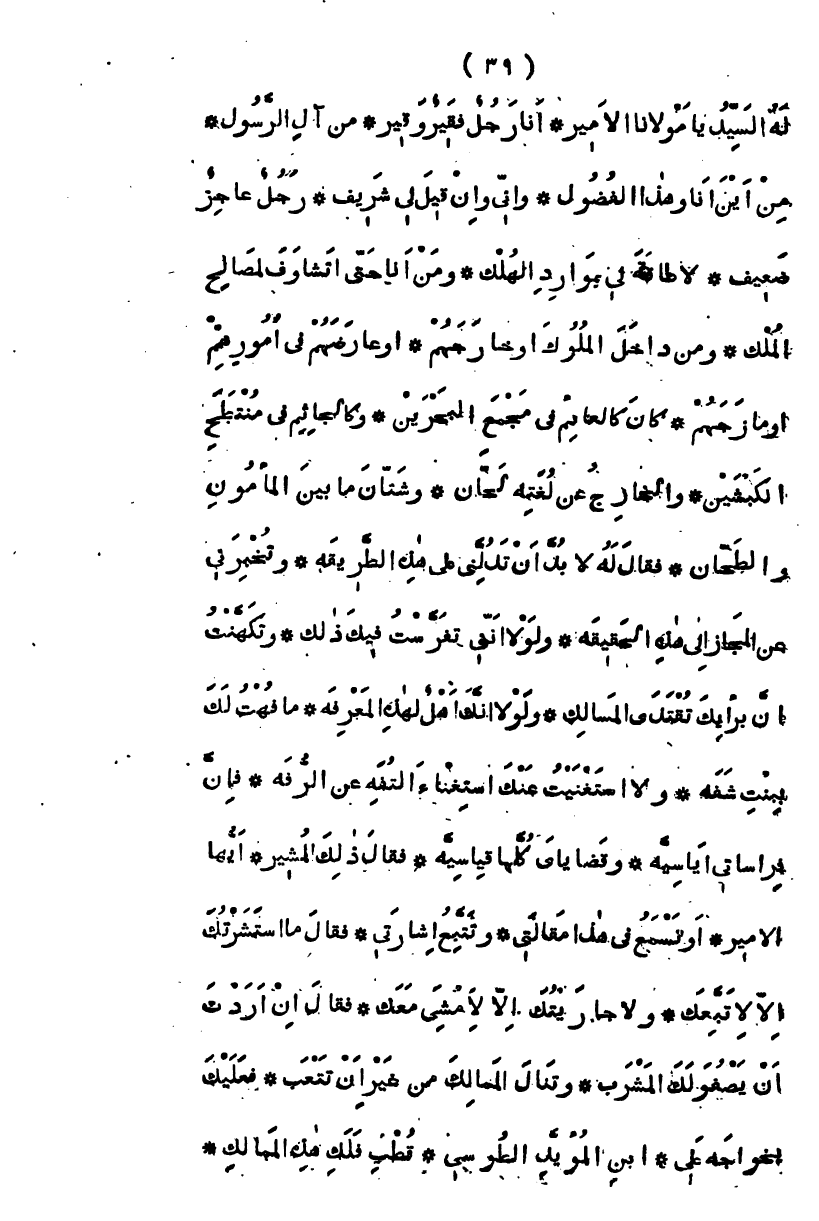 ( ٣٩ )
لَهُ السَيِّدُ يا مَوْلانا الاَمِير * اَنا رَجُلٌ فَقِيرٌ وَقير * من آلِ الرَّسُول *
مِنْ اَيْنَ اَنا وهٰذا الفُضُول * واِنّي واِنْ قِيلَ لي شَرِيف * رَجُلٌ عاجِزٌ
ضَعِيف * لا طاقَةَ لي بمَوارِدِ الهُلْك * ومَنْ اَنا حَتّى اَتشاوَفَ لمَصالِحِ
المُلْك * ومن داخَلَ المُلُوكَ اوخارَجَهُمْ * اوعارَضَهُمْ فى اُمُورِهِمْ
اومازَجَهُمْ * كانَ كالعائِمْ فى مَجْمَعِ البَحْرَيْن * وكالجائِمِ فى مُنْتَطَحِ
الكَبْشَيْن * والخارِجُ عن لُغَتِه لَحَّان * وشَتّانَ ما بينَ المأمُونِ
والطَحَّان * فقالَ لَهُ لا بُدَّ اَنْ تَدُلَّنِى على هٰذِه الطَّرِيقَه * وتُخْبِرَنِي
عن المَجازِ اِلى هٰذِه الحَقِيقَه * ولَوْلا اَنّى تَفَرَّسْتُ فِيكَ ذٰلك * وتكَهَّنْتُ
اَنَّ برأيِكَ تُقْتَدَى المَسالِك * ولَوْلا انَّكَ اَهْلٌ لهٰذِه المَعْرِفَه * ما فُهْتُ لكَ
بِبِنْتِ شَفَه * ولا اسْتَغْنَيْتُ عَنْكَ استِغْناءَ التُفَهِ عن الرُّفَه * فإنَّ
فِراساتي اَياسِيَّه * وقَضايايَ كُلَّها قياسِيَّه * فقالَ ذٰلِكَ المُشِير * اَيُّها
الامِير * اَوَتَسْمَعُ فى هٰذا مَقالَتِي * وتَتَّبِعُ اِشارَتِي * فقالَ ما استَشَرْتُكَ
اِلّا لِاَتَّبِعَك * ولا جارَيْتُكَ اِلّا لِاَمْشِيَ مَعَك * فقالَ اِنْ اَرَدْتَ
اَنْ يَصْفُوَ لَكَ المَشْرَب * وتَنالَ المَمالِكَ من غَيْرِ اَنْ تَتْعَب * فعَلَيْكَ
بخواجَه عَلِي * ابنِ المُؤَيَّدِ الطُوسِيِّ * قُطْبِ فَلَكِ هٰذِه المَمالِك *